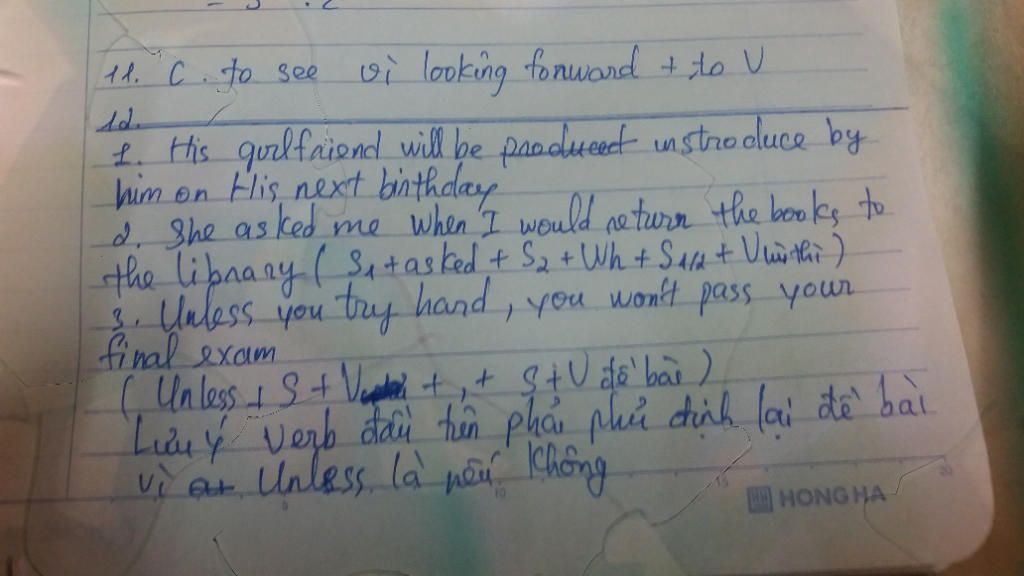 11. C. to see vì looking forward + to V
12.
1. His gurlfriend will be produced instroduce by
him on His next birthday
2. She asked me when I would return the books to
the library ( S1 + asked + S2 + Wh + S1/2 + V lùi thì )
3. Unless you try hard, you won't pass your
final exam
( Unless + S + V + , + S + V đề bài )
Lưu ý verb đầu tiên phải phủ định lại đề bài
vì Unless là nếu không
5 10 15 20
HONG HA